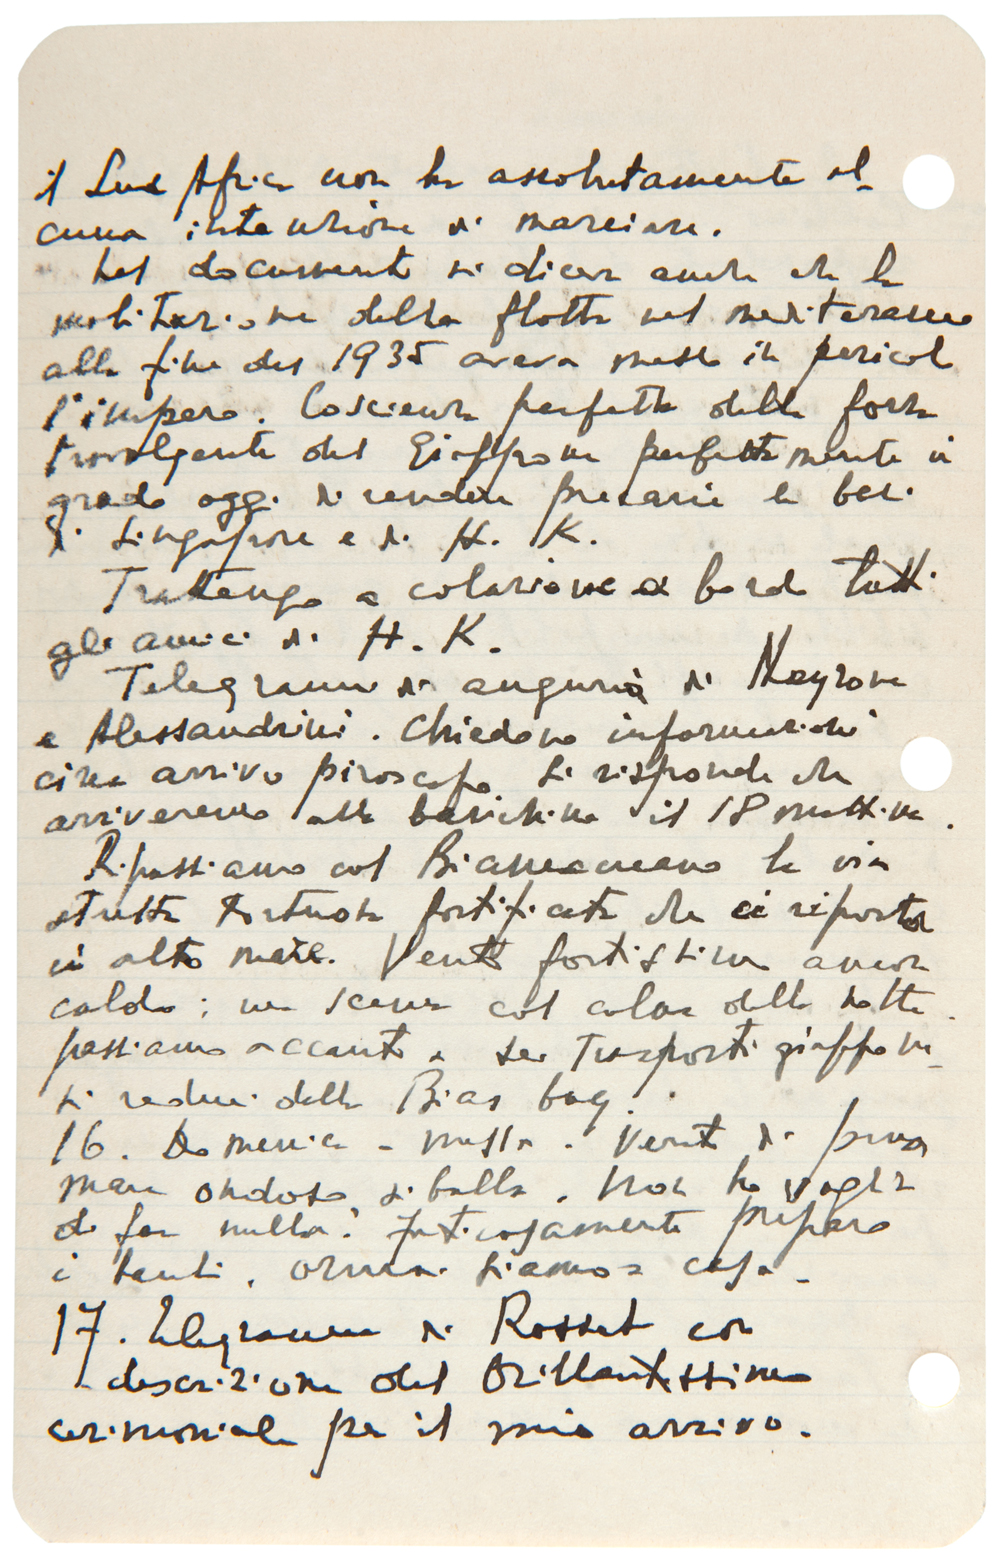 il Sud Africa non ha assolutamente al-
cuna intenzione di marciare.
Nel documento si diceva anche che la
mobilitazione della flotta nel mediterraneo
alla fine del 1935 aveva messo in pericolo
l'impero. Coscienza perfetta della forza
travolgente del Giappone perfettamente in
grado oggi di rendere precarie le basi
di Singapore e di H. K.
Trattengo a colazione a bordo tutti
gli amici di H. K.
Telegrammi di auguri di Neyrone
e Alessandrini. Chiedono informazioni
circa arrivo piroscafo. Si risponde che
arriveremo alla banchina il 18 mattina.
Ripassiamo col Biancamano la via
stretta tortuosa fortificata che ci riporta
in alto mare. Vento fortissimo ancora
caldo; ma scema col calar della notte.
passiamo accanto a sei trasporti giappone-
si reduci dalla Bias bay.
16. Domenica - messa. Vento di prua
mare ondoso, si balla. Non ho voglia
di far nulla. Faticosamente preparo
i bauli, ormai siamo a casa.
17. Telegramma di Rosset con
descrizione del brillantissimo
cerimoniale per il mio arrivo.